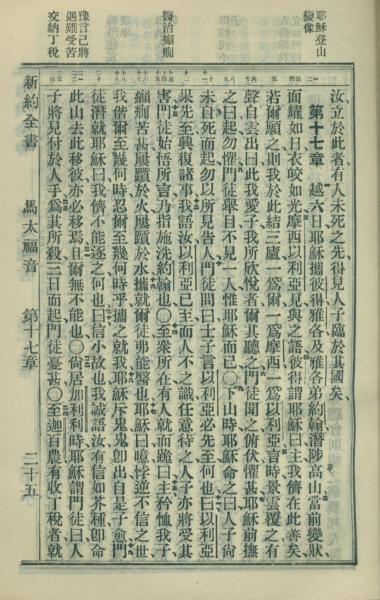 耶穌登山
變像
醫治癲癇
豫言己將
遇難受苦
交納丁稅
汝立於此者有人未死之先得見人子臨於其國矣
第十七章 越六日耶穌攜彼得雅各及雅各弟約翰潛陟高山當前變狀
面耀如日衣皎如光摩西以利亞見與之語彼得謂耶穌曰主我儕在此善矣
若爾願之則我於此結三廬一爲爾一爲摩西一爲以利亞言時景雲覆之有
聲自雲出曰此我愛子我所欣悅者爾其聽之門徒聞之俯伏懼甚耶穌前撫
之曰起勿懼門徒舉目不見一人惟耶穌而已○下山時耶穌命之曰人子尙
未自死而起勿以所見告人門徒問曰士子言以利亞必先至何也曰以利亞
果先至興復諸事我語汝以利亞已至而人不之識任意待之人子亦將受其
害門徒始悟所言乃指施洗約翰也○至衆所在有人就而跪曰主矜恤我子
癲癇苦甚屢躓於火屢躓於水攜就爾徒弗能醫也耶穌曰噫悖逆不信之世
我偕爾至幾何時忍爾至幾何時乎攜之就我耶穌斥鬼鬼卽出自是子愈門
徒潛就耶穌曰我儕不能逐之何也曰信小故也我誠語汝有信如芥種卽命
此山去此移彼亦必移焉且爾無不能也○尙居加利利時耶穌謂門徒曰人
子將見付於人手爲其所殺三日而起門徒憂甚○至迦百農有收丁稅者就
新約全書 馬太福音 第十七章 二十五